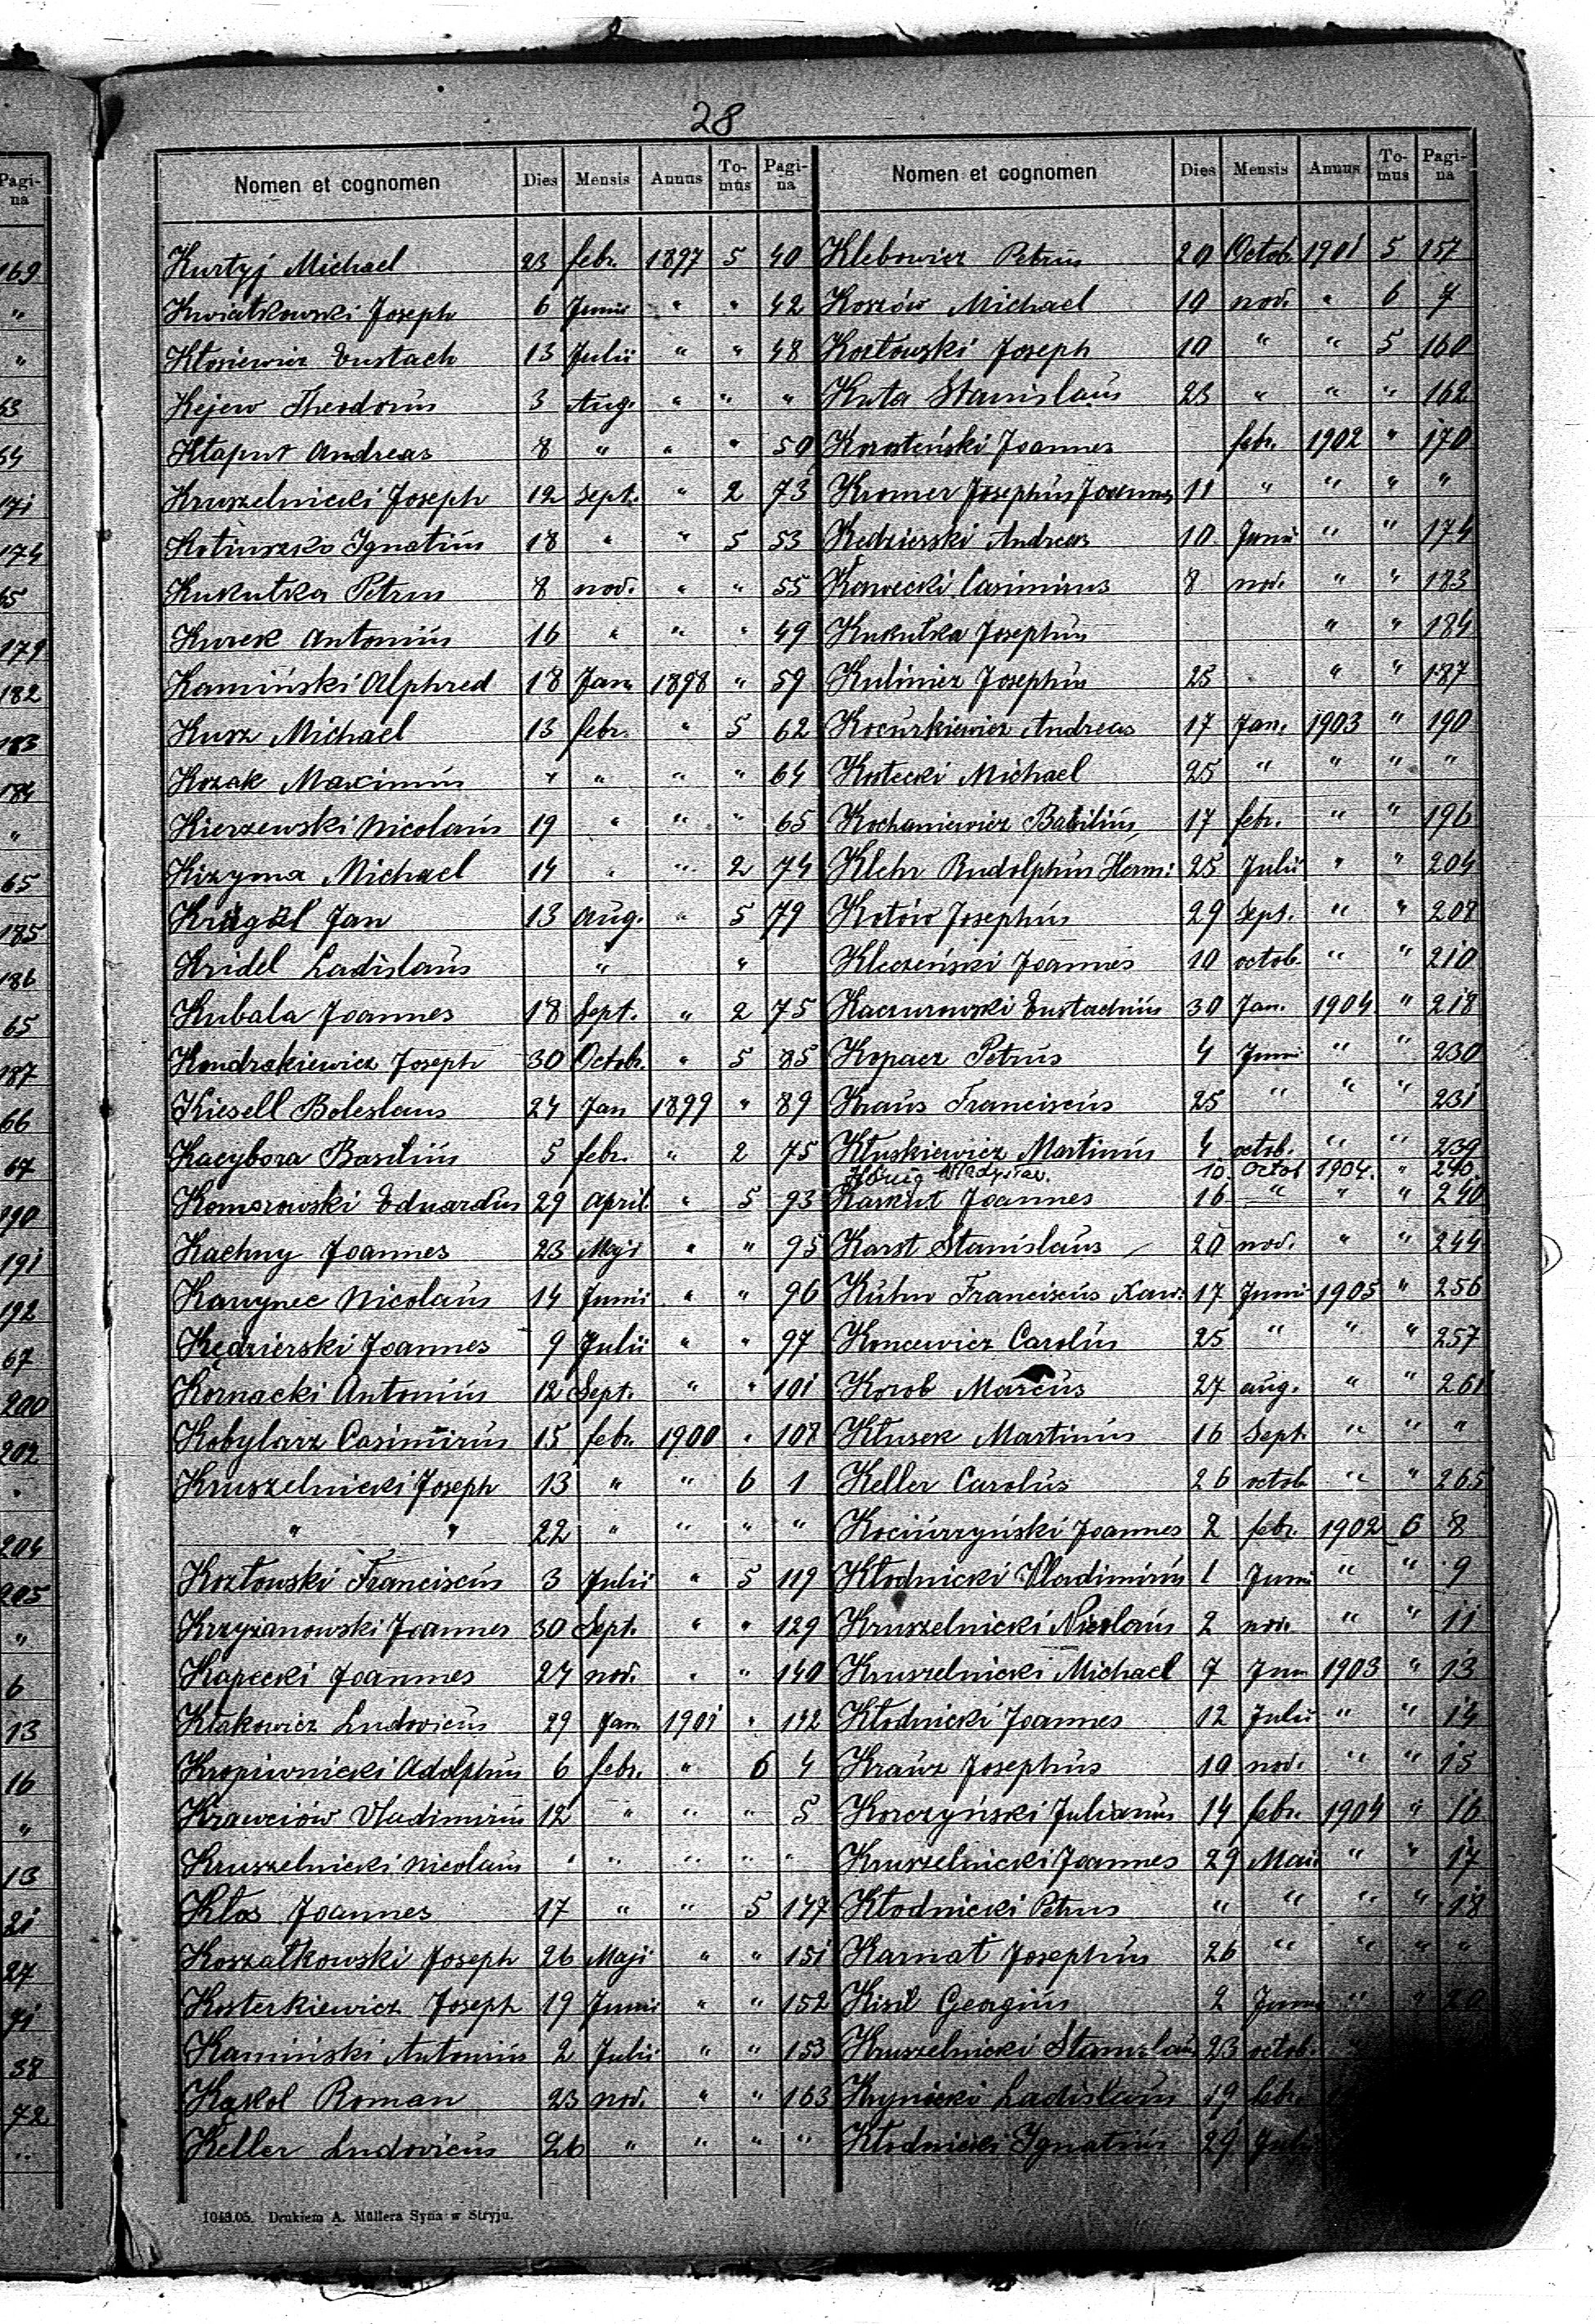 28
Nomen et cognomen Dies Mensis Annus To-mus Pagi-na
Kurtyj Michael 23 febr. 1897 5 40
Kwiatkowski Joseph 6 Junii " " 42
Kłosiewicz Eustach 13 Julii " " 48
Kejew Theodorus 3 Aug. " " "
Kłaput Andreas 8 " " " 50
Kruszelnicki Joseph 12 Sept. " 2 73
Kotiuszko Ignatius 18 " " 5 53
Kukułka Petrus 8 nov. " " 55
Kurek Antonius 16 " " " 49
Kamiński Alphred 18 Jan 1898 " 59
Kusz Michael 13 febr. " 5 62
Kozak Maximus " " " " 64
Kierzewski Nicolaus 19 " " " 65
Kizyma Michael 14 " " 2 74
Jan 13 Aug. " 5 79
Kridel Ladislaus " "
Kubala Joannes 18 Sept. " 2 75
Kondrakiewicz Joseph 30 Octob. " 5 85
Kiesell Boleslaus 24 Jan 1899 " 89
Kacybora Basilius 5 febr. " 2 75
Komorowski Eduardus 29 April. " 5 93
Kachny Joannes 23 Maji " " 95
Kawynec Nicolaus 14 Junii " " 96
Kędzierski Joannes 9 Julii " " 97
Kornacki Antonius 12 Sept. " " 101
Kobylarz Casimirus 15 febr. 1900 " 108
Kruszelnicki Joseph 13 " " 6 1
" " 22 " " " "
Kozłowski Franciscus 3 Julii " 5 119
Krzyżanowski Joannes 30 Sept. " " 129
Kapecki Joannes 24 nov. " " 140
Kłakowicz Ludovicus 29 Jan 1901 " 142
Kropiwnicki Adolphus 6 febr. " 6 4
Krawciów Vladimirus 12 " " " 5
Kruszelnicki Nicolaus " " " " "
Kłos Joannes 17 " " 5 147
Koszałkowski Joseph 26 Maji " " 151
Kosterkiewicz Joseph 19 Junii " " 152
Kamiński Antonius 2 Julii " " 153
Kąkol Roman 23 nov. " " 163
Keller Ludovicus 26 " " " "
Nomen et cognomen Dies Mensis Annus To-mus Pagi-na
Klebowicz Petrus 20 Octob. 1901 5 157
Koszów Michael 10 nov. " 6 7
Kozłowski Joseph 10 " " 5 160
Kuta Stanislaus 23 " " " 162
Korosteński Joannes febr. 1902 " 170
Kromer Josephus Joannes 11 " " " "
Kędzierski Andreas 10 Junii " " 174
Kawecki Casimirus 8 nov. " " 183
Kukułka Josephus " " 184
Kulinicz Josephus 25 " " 187
Kocurkiewicz Andreas 17 Jan. 1903 " 190
Kotecki Michael 25 " " " "
Kochaniewicz Basilius 17 febr. " " 196
Klehr Rudolphus Herm: 25 Julii " " 204
Kotów Josephus 29 Sept. " " 208
Kleczeński Joannes 10 octob. " " 210
Kaczurowski Eustachius 30 Jan. 1904 " 218
Kopacz Petrus 4 Junii " " 230
Kraus Franciscus 25 " " " 231
Kłuskiewicz Martinus 4 octob. " " 239
Władysław. 10. Octob 1904. " 240.
Joannes 16 " " " 240
Karst Stanislaus 20 nov. " " 244
Kuhn Franciscus Xaw: 17 Junii 1905 " 256
Koncewicz Carolus 25 " " " 257
Korob Marcus 27 aug. " " 261
Kłusek Martinus 16 Sept. " " "
Keller Carolus 26 octob " " 265
Kociurzyński Joannes 2 febr. 1902 6 8
Kłodnicki Vladimirus 1 Junii " " 9
Kruszelnicki Nicolaus 2 nov. " " 11
Kruszelnicki Michael 7 Jun 1903 " 13
Kłodnicki Joannes 12 Julii " " 14
Krawz Josephus 10 nov. " " 15
Korczyński Julianus 14 febr. 1904 " 16
Kruszelnicki Joannes 29 Maii " " 17
Kłodnicki Petrus " " " " 18
Karnat Josephus 26 " " " "
Kisil Georgius 2 Junii " " 20
Kruszelnicki Stanislaus 23 octob.
Krynicki Ladislaus 19 febr.
Kłodnicki Ignatius 29 Julii
1043.05. Drukiem A. Müllera Syna w Stryju.
Pagi-na
169
"
"
63
64
171
174
65
179
182
183
184
"
65
185
186
65
187
66
67
190
191
192
67
200
202
"
204
205
"
6
13
16
"
13
21
27
71
38
72
"